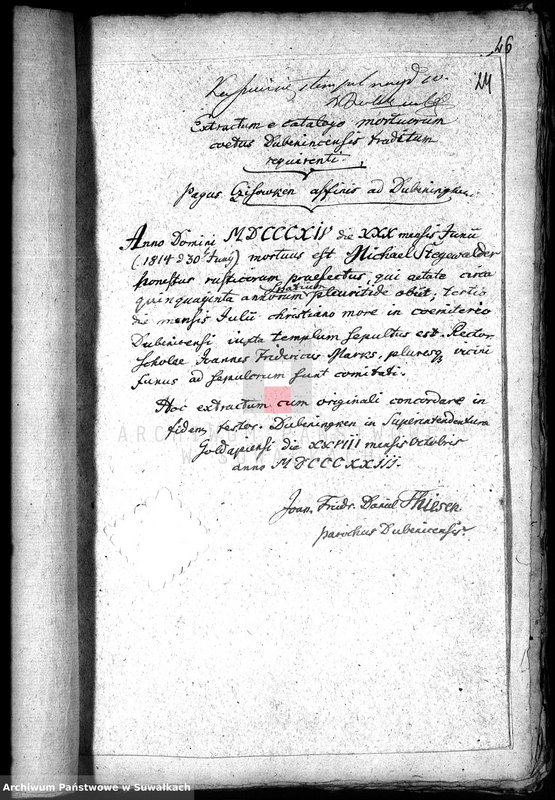 46
24
Extractum e catalogo mortuorum
coetus Dubeninensis traditum
requirenti.
Pagus Czisowken affinis ad Dubeningken.
Anno Domini MDCCCXIV die XXX mensis Junii
(1814 d 30 Junÿ) mortuus est Michael Stegewalder
honestus rusticorum praefectus, qui aetate circa
quinquaginta annorum pleuritide obiit, tertio
die mensis Julii christiano more in coemiterio
Dubenicensi iuxta templum sepultus est. Rector
scholae Joannes Fridericus Marks, pluresq vicini
funus ad sepulcrum sunt comitati.
Hoc extractum cum originali concordare in
fidem testor. Dubeningken in Superintendentura
Goldapiensi die XXVIII mensis Octobris
anno MDCCCXXIII.
Joan. Fridr. Daniel Thiesen
parochus Dubenicensis.
ARCHIWUM
W SUWAŁKACH
Archiwum Państwowe w Suwałkach